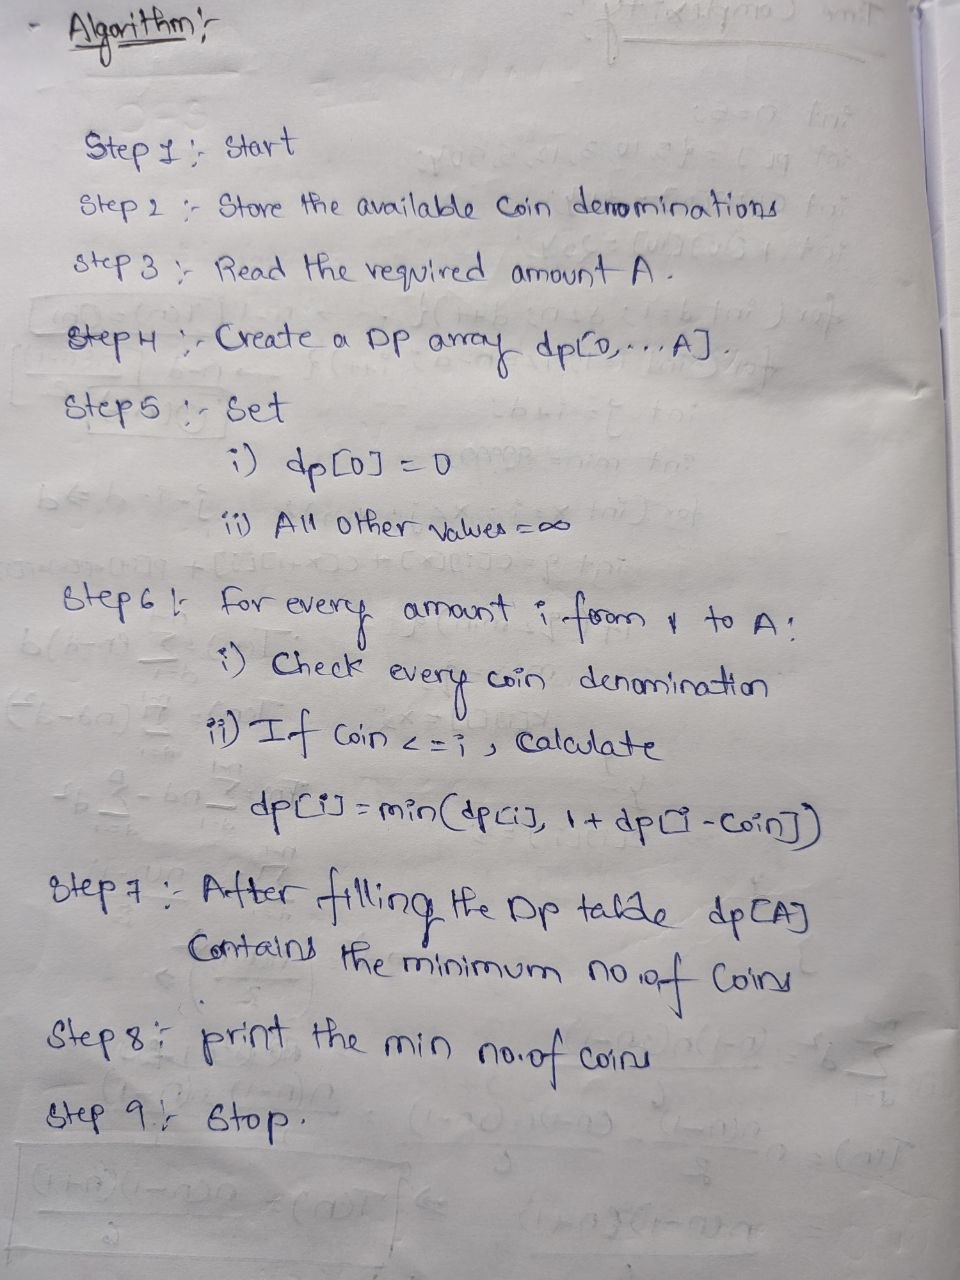 Algorithm:-
Step 1:- Start
Step 2:- Store the available coin denominations
Step 3:- Read the required amount A.
Step 4:- Create a DP array dp[0,...A].
Step 5:- Set
i) dp[0] = 0
ii) All other values = ∞
Step 6:- for every amount i from 1 to A:
i) Check every coin denomination
ii) If coin <= i, calculate
dp[i] = min(dp[i], 1 + dp[i - coin])
Step 7:- After filling the DP table dp[A]
contains the minimum no.of coins
Step 8:- print the min no.of coins
Step 9:- Stop.